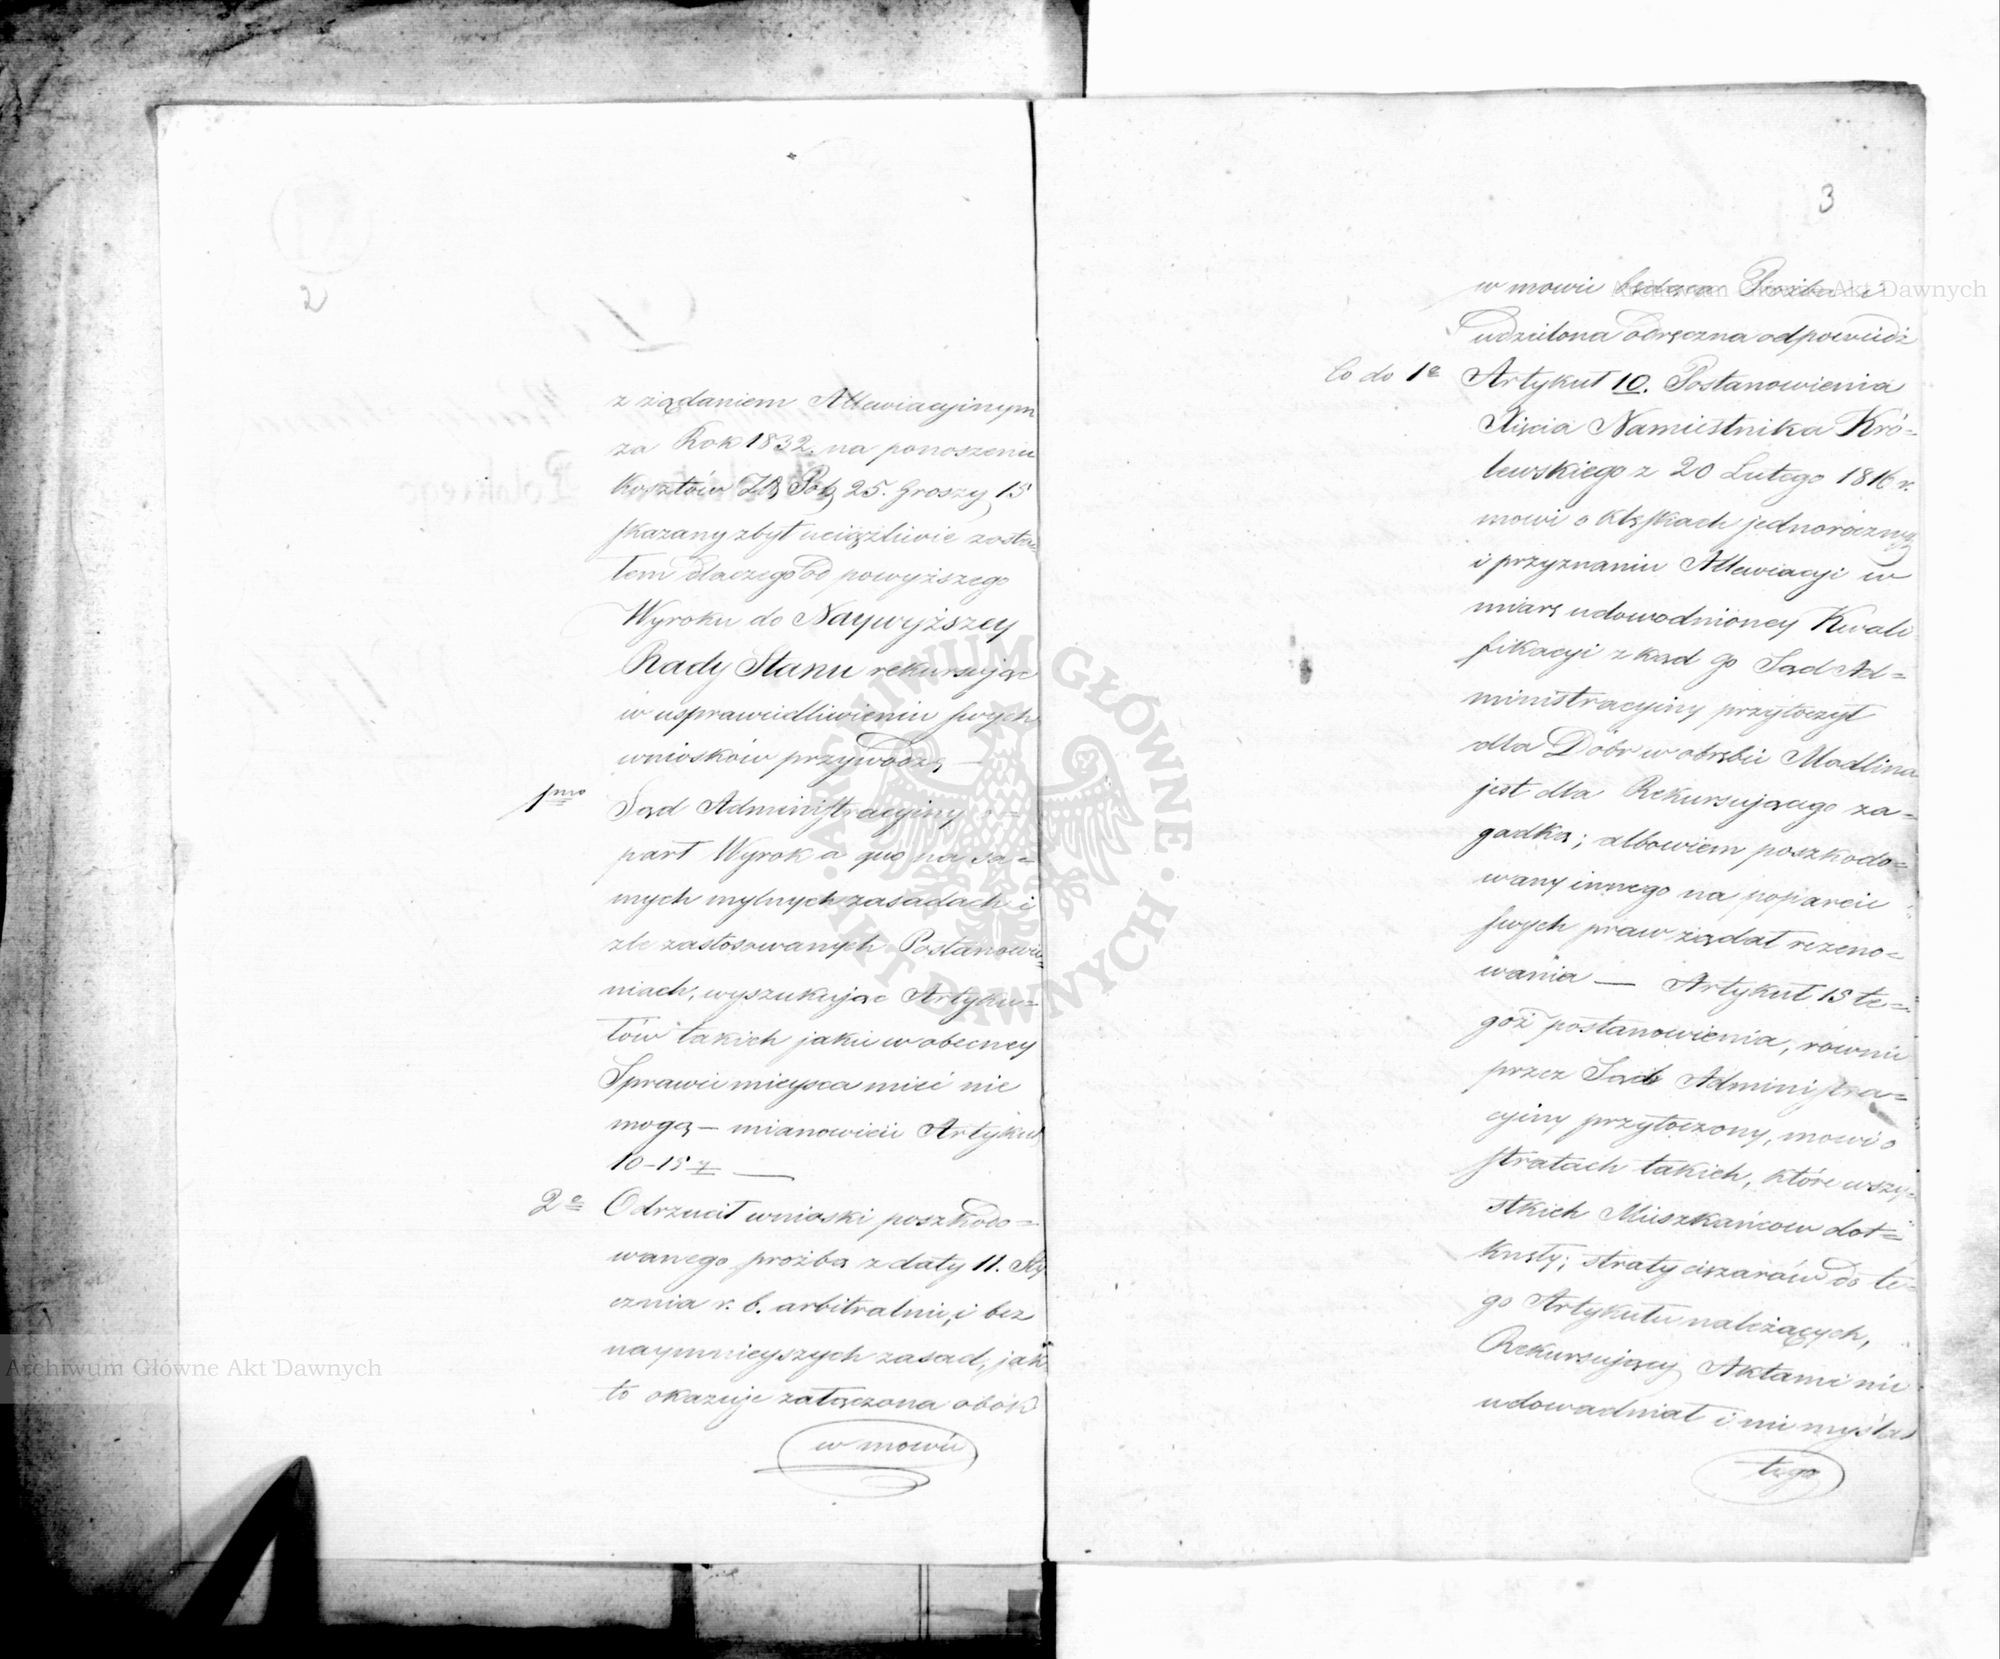 2
z żądaniem Allewiacyjnym
za Rok 1832. na ponoszenie
kosztów Zł. Pol. 25. Groszy 15
skazany zbyt uciążliwie zosta-
łem dlaczego od powyższego
Wyroku do Naywyższey
Rady Stanu rekursując
w usprawiedliwieniu swych
wniosków przywodzę —
1mo Sąd Administracyjny o-
parł Wyrok a quo na sa=
mych mylnych zasadach i
źle zastosowanych Postanowie=
niach, wyszukując Artyku=
łów takich jakie w obecney
Sprawie mieysca mieć nie
mogą — mianowicie Artykuł
10-15 —
2e Odrzucił wnioski poszkodo=
wanego prożbą z daty 11. Sty
cznia r. b. arbitralnie, i bez
naymnieyszych zasad, jak
to okazuje załączona obok
w mowie
3
w mowie będąca Prożba i
udzielona odręczna odpowiedź
Co do 1e Artykuł 10. Postanowienia
Xięcia Namiestnika Kró=
lewskiego z 20 Lutego 1816 r.
mowi o klęskach jednorocznych
i przyznaniu Allewiacyi w
miarę udowodnioney Kwali
fikacyi zkąd go Sąd Ad=
ministracyiny przytoczył
dla Dóbr w obrębie Modlina
jest dla Rekursującego za=
gadką; albowiem poszkodo=
wany innego na poparcie
swych praw żądał rezono=
wania — Artykuł 15 te=
goż postanowienia, równie
przez Sąd Administra=
cyiny przytoczony, mowi o
stratach takich, które wszy=
stkich Mieszkańców dot=
knęły; straty ciężarów do te=
go Artykułu należących,
Rekursujący Aktami nie
udowadniał i nie myślał
tego
Archiwum Główne Akt Dawnych
Archiwum Główne Akt Dawnych
ARCHIWUM GŁÓWNE · AKT DAWNYCH ·